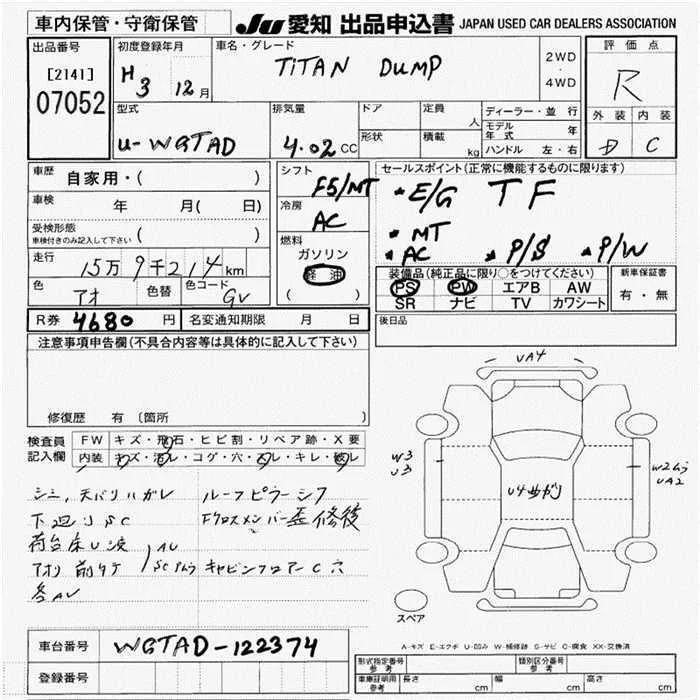 車内保管・守衛保管
JU 愛知 出品申込書 JAPAN USED CAR DEALERS ASSOCIATION
出品番号
[2141]
07052
初度登録年月
H3 12月
車名・グレード
TITAN DUMP
2WD
・
4WD
評価点
R
外装 内装
D C
型式
U-WGTAD
排気量
4.02 CC
ドア
形状
定員
人
積載
kg
ディーラー・並行
モデル年式 年
ハンドル 左・右
車歴 自家用・( )
車検 年 月( 日)
受検形態
車検付きのみ記入して下さい ( )
走行 15万9千214km
色 アオ 色替 色コード GV
シフト
F5/MT
冷房
AC
燃料
ガソリン
軽油
( )
セールスポイント(正常に機能するものに限ります)
* E/G TF
* MT
* AC * P/S * P/W
装備品(純正品に限り○をつけてください)
PS PW エアB AW
SR ナビ TV カワシート
新車保証書
有・無
R券 4680 円
名変通知期限 月 日
後日品
注意事項申告欄(不具合内容等は具体的に記入して下さい)
修復歴 有 〔箇所
検査員記入欄
FW キズ・飛石・ヒビ割・リペア跡・X要
内装 キズ・汚レ・コゲ・穴・スレ・キレ・破レ
シミ, 天バリハガレ
下廻りSC
荷台床U波
アオリ前タテ
各AU
AU
ルーフピラーシワ
Fクロスメンバー歪修復
キャビンフロアーC穴
UA4
W3
U3
U4曲ガリ
UA2
スペア
A-キズ E-エクボ U-凹み W-補修跡 S-サビ C-腐食 XX-交換済
車台番号 WGTAD-122374
登録番号
形式指定番号
参考
類別区分番号
参考
車庫証明用
参考
長さ cm 幅 cm 高さ cm